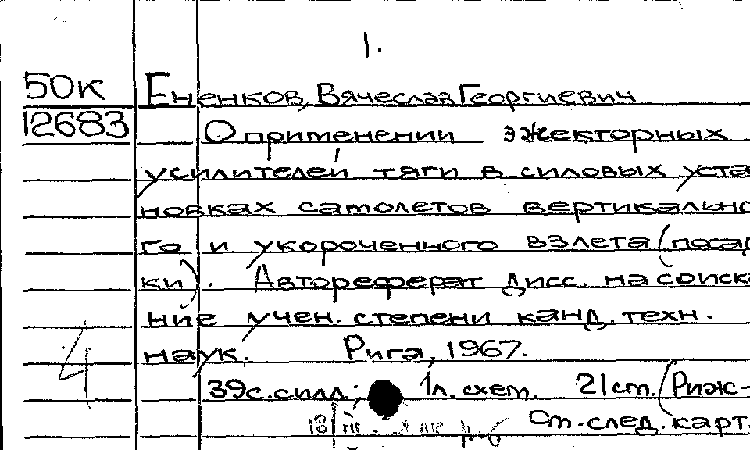 1.
50к Ененков, Вячеслав Георгиевич
12683 О применении эжекторных
усилителей тяги в силовых уста
новках самолетов вертикально
го и укороченного взлета (посад
ки). Автореферат дисс. на соиска
ние учен. степени канд. техн.
наук. Рига, 1967.
4
39с.силл.; 1л.схем. 21cm. (Риж-
См.след.карт.